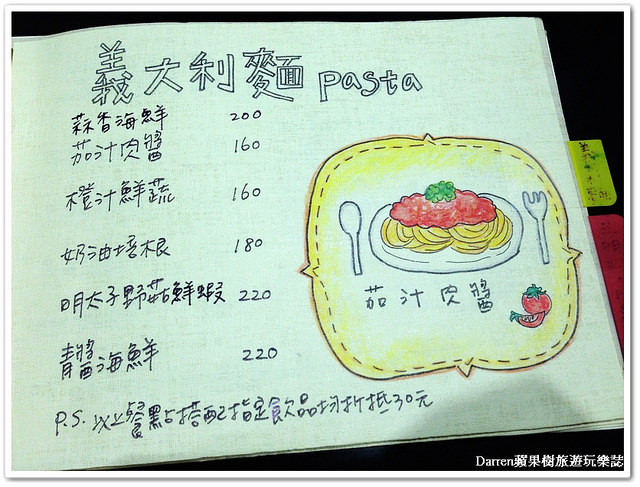 義大利麵 pasta
蒜香海鮮 200
茄汁肉醬 160
橙汁鮮蔬 160
奶油培根 180
明太子野菇鮮蝦 220
青醬海鮮 220
P.S. 以上餐點搭配指定飲品均折抵30元
茄汁肉醬
Darren蘋果樹旅遊玩樂誌